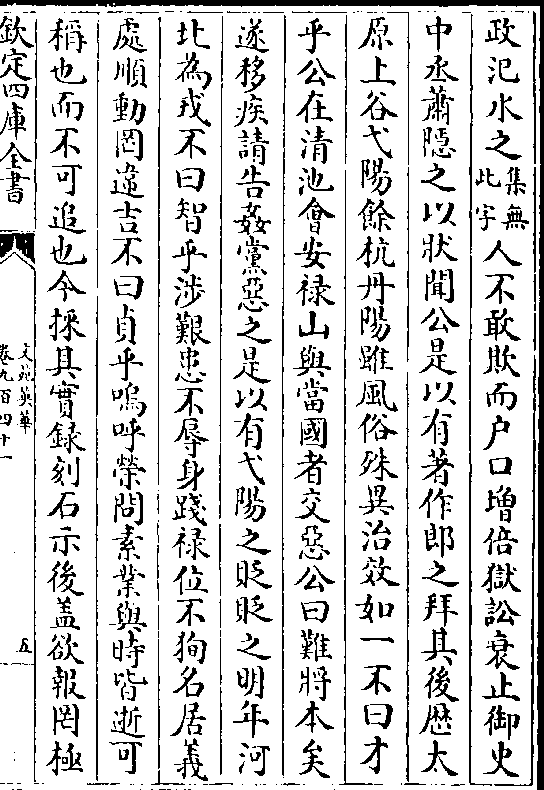 政氾水之集無此字人不敢欺而户口増倍獄訟衰止御史
中丞蕭隠之以狀聞公是以有著作郎之拜其後歴太
原上谷弋陽餘杭丹陽雖風俗殊異治效如一不曰才
乎公在清池會安禄山與當國者交惡公曰難將本矣
遂移疾請告姦黨惡之是以有弋陽之貶貶之明年河
北為戎不曰智乎涉艱患不辱身踐禄位不狥名居義
處順動罔違吉不曰貞乎嗚呼榮問素業與時皆逝可
稱也而不可追也今採其實録刻石示後盖欲報罔極
欽定四庫全書
文苑英華
卷九百四十一
五